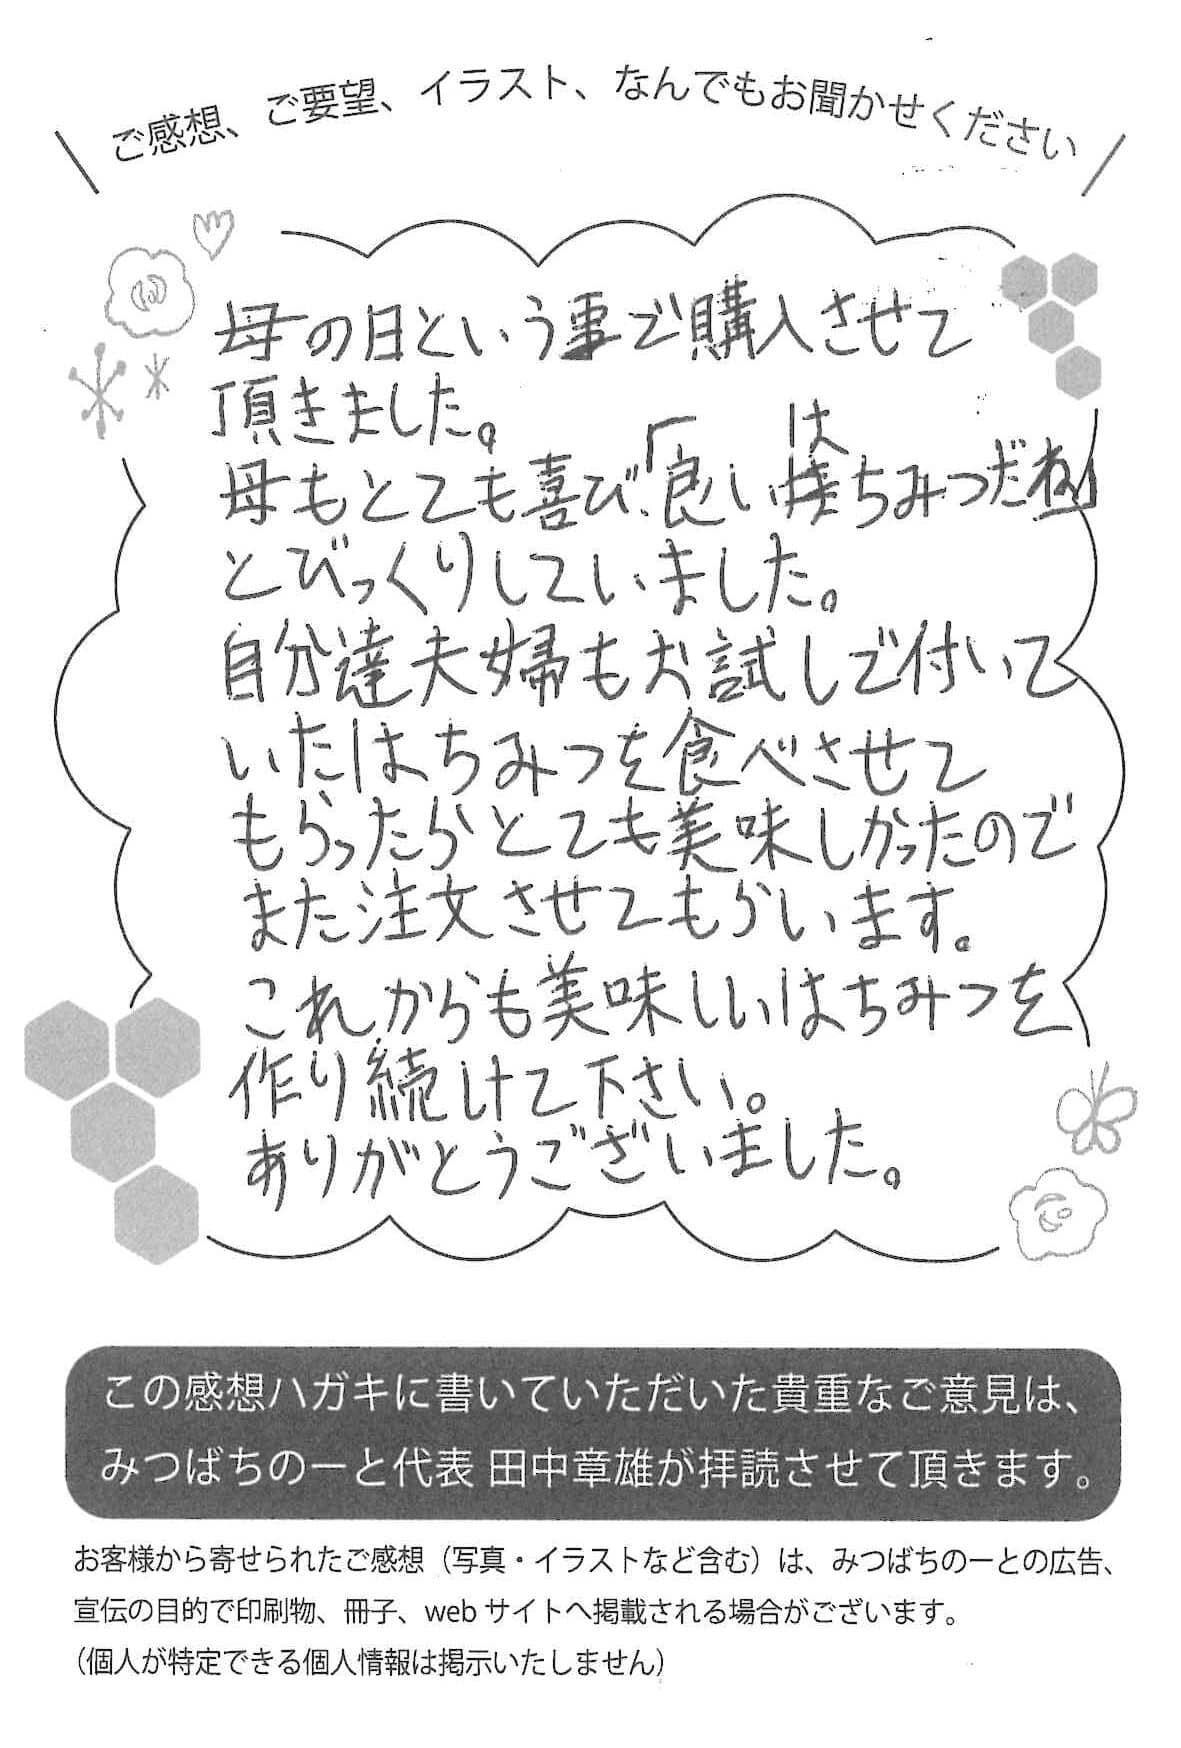 ご感想、ご要望、イラスト、なんでもお聞かせください
母の日という事で購入させて
頂きました。
母もとても喜び「良いはちみつだね」
とびっくりしていました。
自分達夫婦もお試しで付いて
いたはちみつを食べさせて
もらったらとても美味しかったので
また注文させてもらいます。
これからも美味しいはちみつを
作り続けて下さい。
ありがとうございました。
この感想ハガキに書いていただいた貴重なご意見は、
みつばちのーと代表 田中章雄が拝読させて頂きます。
お客様から寄せられたご感想（写真・イラストなど含む）は、みつばちのーとの広告、
宣伝の目的で印刷物、冊子、web サイトへ掲載される場合がございます。
（個人が特定できる個人情報は掲示いたしません）